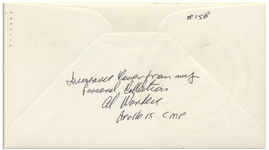 #158
Insurance Cover from my
Personal Collection
Al Worden
Apollo 15 CMP